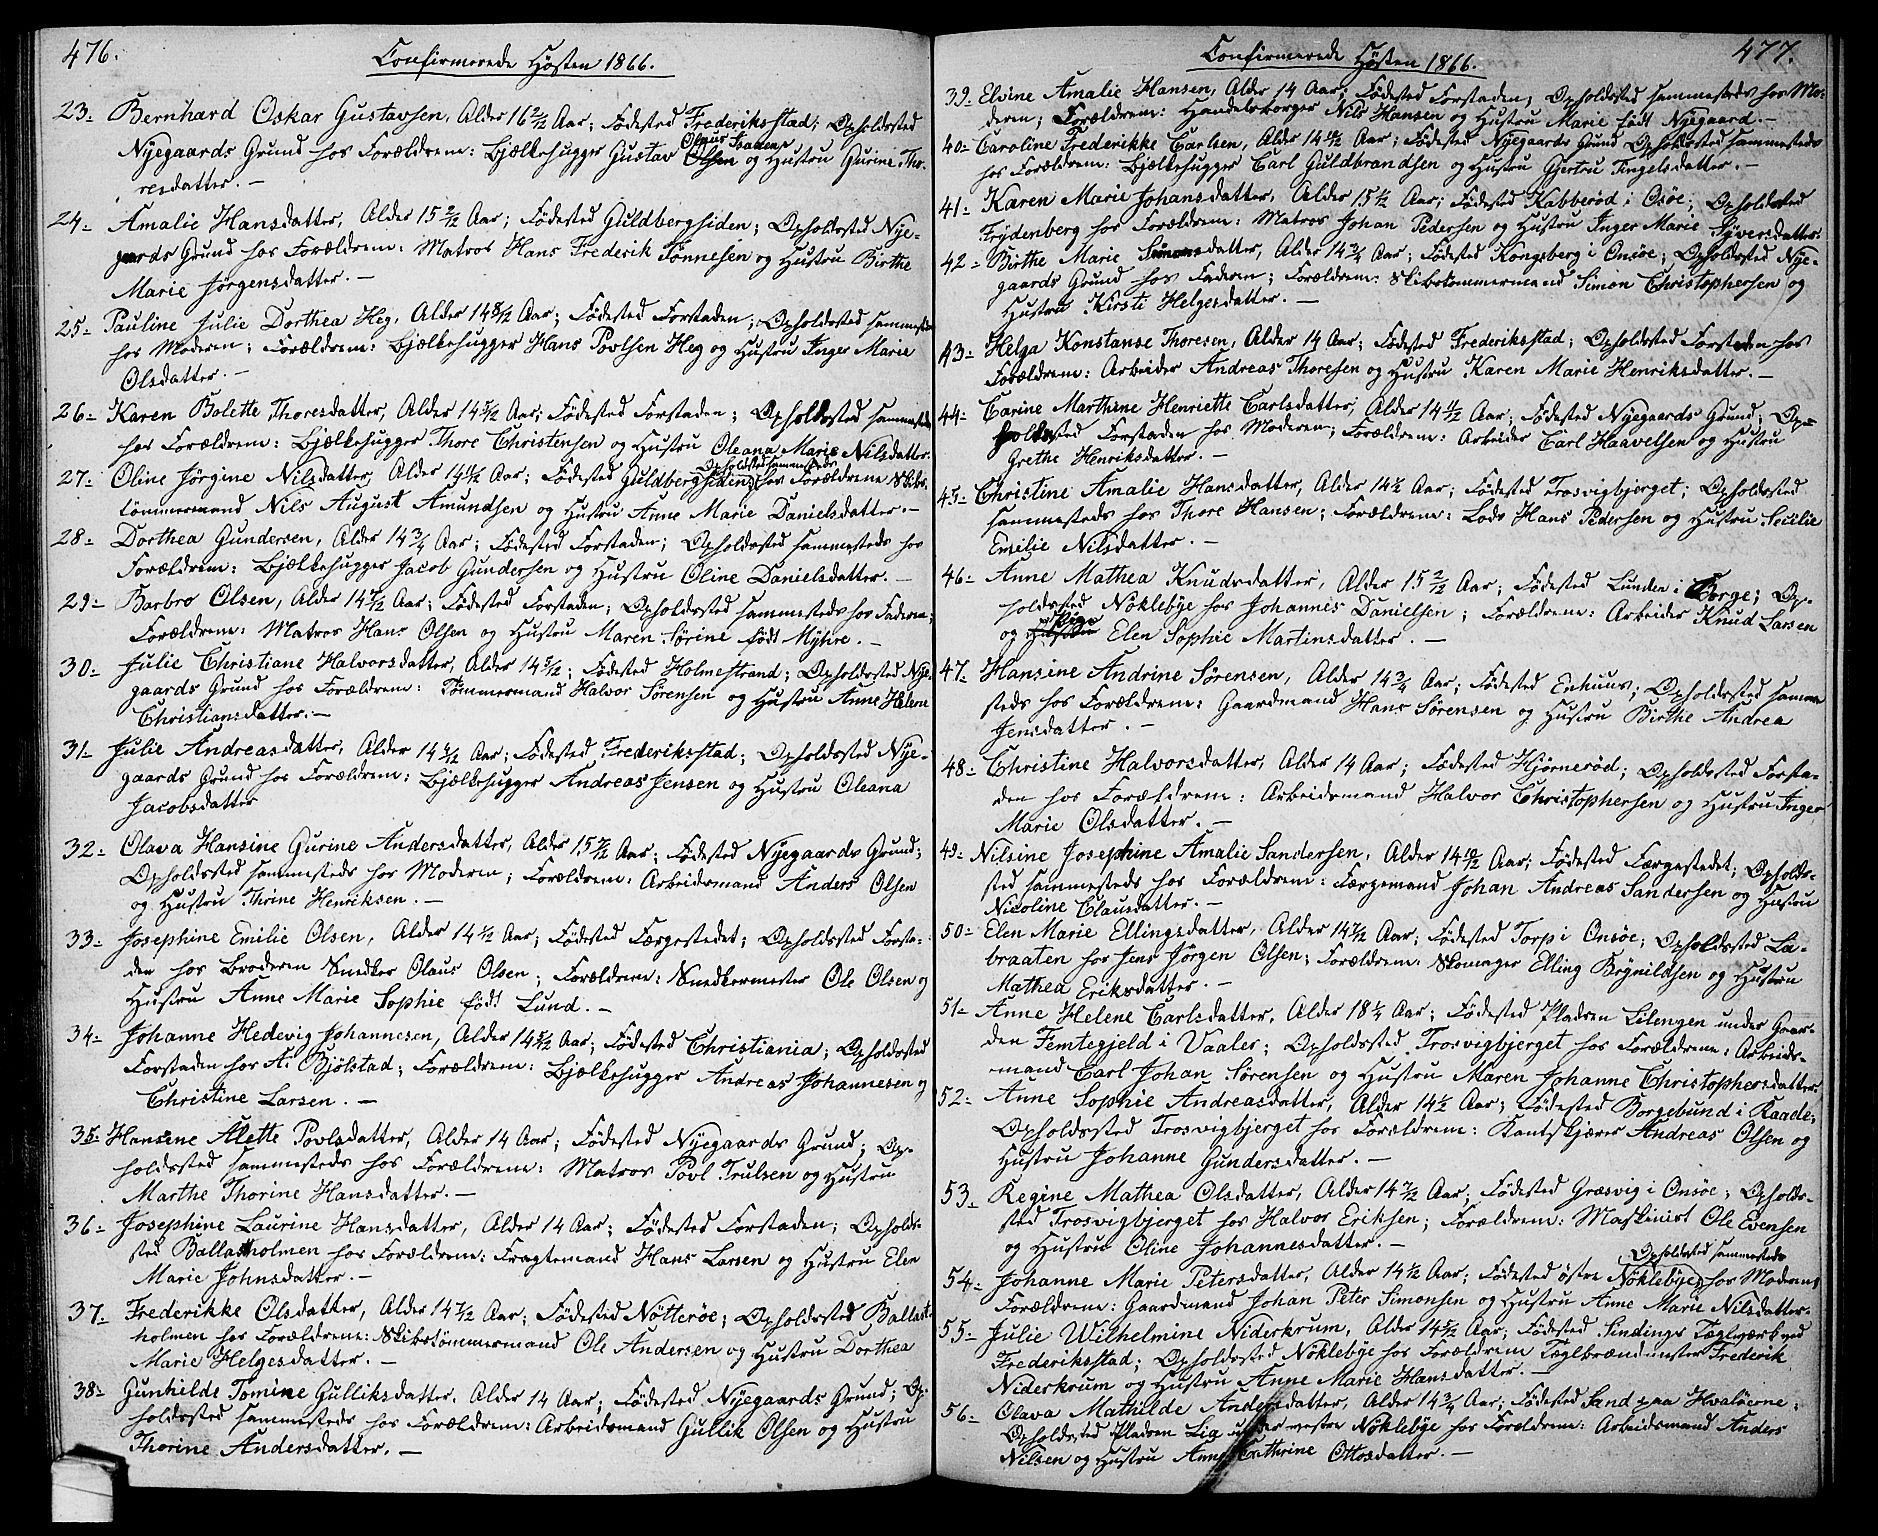 476.
Confirmerede Høsten 1866.
23- Bernhard Oskar Gustavsen, Alder 16 2/12 Aar; Fødested Frederiksstad; Opholdssted
Nyegaards Grund hos Forældrene: Bjælkehugger Gustav Olsen og Hustru Gurine Tho-
resdatter. —
24- Amalie Hansdatter, Alder 15 2/12 Aar; Fødested Guldbergsiden; Opholdssted Nye-
gaards Grund hos Forældrene: Matros Hans Frederik Tønnesen og Hustru Birthe
Marie Jørgensdatter. —
25- Pauline Julie Dorthea Heg, Alder 14 8/12 Aar; Fødested Forstaden; Opholdssted sammesteds
hos Moderen; Forældrene: Bjælkehugger Hans Povlsen Heg og Hustru Inger Marie
Olsdatter. —
26- Karen Bolette Thoresdatter, Alder 14 5/12 Aar; Fødested Forstaden; Opholdssted sammesteds
hos Forældrene: Bjælkehugger Thore Christensen og Hustru Oleana Marie Nilsdatter.
27- Oline Jørgine Nilsdatter, Alder 14 1/2 Aar; Fødested Guldbergsiden, Opholdssted sammesteds hos Forældrene Skibs-
tømmermand Nils August Amundsen og Hustru Anne Marie Danielsdatter. —
28- Dorthea Gundersen, Alder 14 3/4 Aar; Fødested Forstaden; Opholdssted sammesteds hos
Forældrene: Bjælkehugger Jacob Gundersen og Hustru Oline Danielsdatter. —
29- Barbro Olsen, Alder 14 7/12 Aar; Fødested Forstaden; Opholdssted sammesteds hos Faderen;
Forældrene: Matros Hans Olsen og Hustru Maren Sørine født Myhre. —
30- Julie Christiane Halvorsdatter, Alder 14 5/12; Fødested Holmestrand; Opholdssted Nye-
gaards Grund hos Forældrene: Tømmermand Halvor Sørensen og Hustru Anne Helene
Christiansdatter. —
31- Julie Andreasdatter, Alder 14 1/2 Aar; Fødested Frederiksstad; Opholdssted Nye-
gaards Grund hos Forældrene: Bjælkehugger Andreas Jensen og Hustru Oleana
Jacobsdatter
32- Olava Hansine Gurine Andersdatter, Alder 15 7/12 Aar; Fødested Nyegaards Grund;
Opholdssted sammesteds hos Moderen; Forældrene: Arbeidsmand Anders Olsen
og Hustru Thrine Henriksen. —
33- Josephine Emilie Olsen, Alder 14 1/2 Aar; Fødested Færgestedet; Opholdssted Forsta-
den hos Broderen Snedker Olaus Olsen; Forældrene: Snedkermester Ole Olsen og
Hustru Anne Marie Sophie født Lund. —
34- Johanne Hedevig Johannesen, Alder 14 5/12 Aar; Fødested Christiania; Opholdssted
Forstaden hos A. Bjølstad; Forældrene: Bjælkehugger Andreas Johannesen og
Christine Larsen. —
35- Hansine Alette Povlsdatter, Alder 14 Aar; Fødested Nyegaards Grund; Op-
holdssted sammesteds hos Forældrene: Matros Povl Trulsen og Hustru
Marthe Thorine Hansdatter. —
36- Josephine Laurine Hansdatter, Alder 14 Aar; Fødested Forstaden; Opholds-
sted Ballastholmen hos Forældrene: Fragtemand Hans Larsen og Hustru Elen
Marie Johnsdatter. —
37- Frederikke Olsdatter, Alder 14 7/12 Aar; Fødested Nøtterøe; Opholdssted Ballast-
holmen hos Forældrene: Skibstømmermand Ole Andersen og Hustru Dorthea
Marie Helgesdatter. —
38- Gunhilde Tomine Gulliksdatter, Alder 14 Aar; Fødested Nyegaards Grund; Op-
holdssted sammesteds hos Forældrene: Arbeidsmand Gullik Olsen og Hustru
Thorine Andersdatter. —
477.
Confirmerede Høsten 1866.
39- Elvine Amalie Hansen, Alder 14 Aar; Fødested Forstaden; Opholdssted sammesteds hos Mo-
deren; Forældrene: Handelsborger Nils Hansen og Hustru Marie født Nyegaard. —
40- Caroline Frederikke Carlsen, Alder 14 Aar; Fødested Nyegaards Grund Opholdssted sammesteds
hos Forældrene: Bjælkehugger Carl Guldbrandsen og Hustru Gjertru Tingelsdatter. —
41- Karen Marie Johansdatter, Alder 15 1/2 Aar; Fødested Kabberød i Onsøe; Opholdssted
Frydenberg hos Forældrene: Matros Johan Pedersen og Hustru Inger Marie Syversdatter.
42- Birthe Marie Simonsdatter, Alder 14 3/4 Aar; Fødested Kongsberg i Onsøe; Opholdssted Nye-
gaards Grund hos Faderen; Forældrene: Skibstømmermand Simon Christophersen og
Hustru Kirsti Helgesdatter. —
43- Helga Konstanse Thoresen, Alder 14 Aar; Fødested Frederiksstad; Opholdssted Forstaden hos
Forældrene: Arbeider Andreas Thoresen og Hustru Karen Marie Henriksdatter. —
44- Carine Marthine Henriette Carlsdatter, Alder 14 1/2 Aar; Fødested Nyegaards Grund; Op-
holdssted Forstaden hos Moderen; Forældrene: Arbeider Carl Haavelsen og Hustru
Grethe Henriksdatter. —
45- Christine Amalie Hansdatter, Alder 14 1/2 Aar; Fødested Trosvigbjerget; Opholdssted
sammesteds hos Thore Hansen; Forældrene: Lods Hans Pedersen og Hustru Secilie
Emilie Nilsdatter. —
46- Anne Mathea Knudsdatter, Alder 15 2/12 Aar; Fødested Lunden i Borge; Op-
holdssted Nøklebye hos Johannes Danielsen; Forældrene: Arbeider Knud Larsen
og Pige Elen Sophie Martinsdatter. —
47- Hansine Andrine Sørensen, Alder 14 3/4 Aar; Fødested Enhuus; Opholdssted samme-
steds hos Forældrene: Gaardmand Hans Sørensen og Hustru Birthe Andrea
Jensdatter. —
48- Christine Halvorsdatter, Alder 14 Aar; Fødested Hjørnerød; Opholdssted Forsta-
den hos Forældrene: Arbeidsmand Halvor Christophersen og Hustru Inger
Marie Olsdatter. —
49- Nilsine Josephine Amalie Sandersen, Alder 14 10/12 Aar; Fødested Færgestedet; Opholds-
sted sammesteds hos Forældrene: Færgemand Johan Andreas Sandersen og Hustru
Nicoline Clausdatter. —
50- Elen Marie Ellingsdatter, Alder 14 7/12 Aar; Fødested Torp i Onsøe; Opholdssted La-
braaten hos Jens Jørgen Olsen; Forældrene: Skomager Elling Brynildsen og Hustru
Mathea Eriksdatter. —
51- Anne Helene Carlsdatter, Alder 18 1/4 Aar; Fødested Pladsen Lilengen under Gaar-
den Femtegjeld i Vaaler; Opholdssted Trosvigbjerget hos Forældrene: Arbeids-
mand Carl Johan Sørensen og Hustru Maren Johanne Christophersdatter.
52- Anne Sophie Andreasdatter, Alder 14 1/2 Aar; Fødested Borgebund i Raade;
Opholdssted Trosvigbjerget hos Forældrene: Kantskjærer Andreas Olsen og
Hustru Johanne Gundersdatter. —
53- Regine Mathea Olsdatter, Alder 14 7/12 Aar; Fødested Græsvig i Onsøe; Opholds-
sted Trosvigbjerget hos Halvor Eriksen; Forældrene: Maskinist Ole Evensen
og Hustru Oline Johannesdatter. —
54- Johanne Marie Petersdatter, Alder 14 1/2 Aar; Fødested østre Nøklebye, Opholdssted sammesteds hos Moderen;
Forældrene: Gaardmand Johan Peter Simonsen og Hustru Anne Marie Nilsdatter.
55- Julie Wilhelmine Niderkrum, Alder 14 5/12 Aar; Fødested Sindings Teglværk ved
Frederiksstad; Opholdssted Nøklebye hos Forældrene Teglbrændmester Frederik
Niderkrum og Hustru Anne Marie Hansdatter. —
56- Olava Mathilde Andersdatter, Alder 14 3/4 Aar; Fødested Sand paa Hvaløerne;
Opholdssted Pladsen Lia under vestre Nøklebye hos Forældrene: Arbeidsmand Anders
Nilsen og Hustru Anne Cathrine Ottosdatter. —